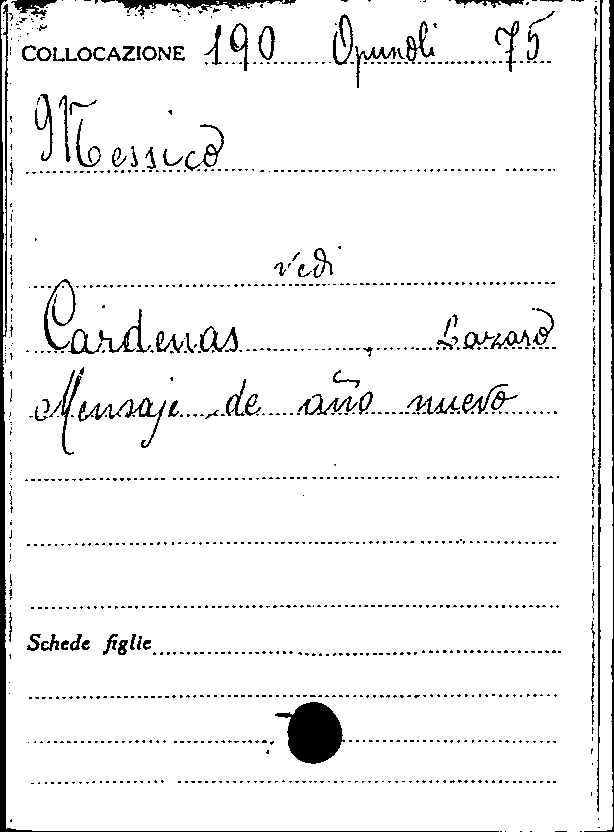 COLLOCAZIONE 190 Opuscoli 75
Messico
vedi
Cardenas , Lazaro
Mensaje de año nuevo
Schede figlie